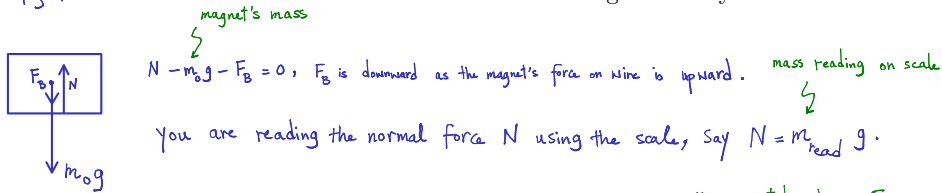 magnet's mass
N - m₀g - F_B = 0, F_B is downward as the magnet's force on wire is upward.
mass reading on scale
F_B N
You are reading the normal force N using the scale, say N = m_read g.
m₀g